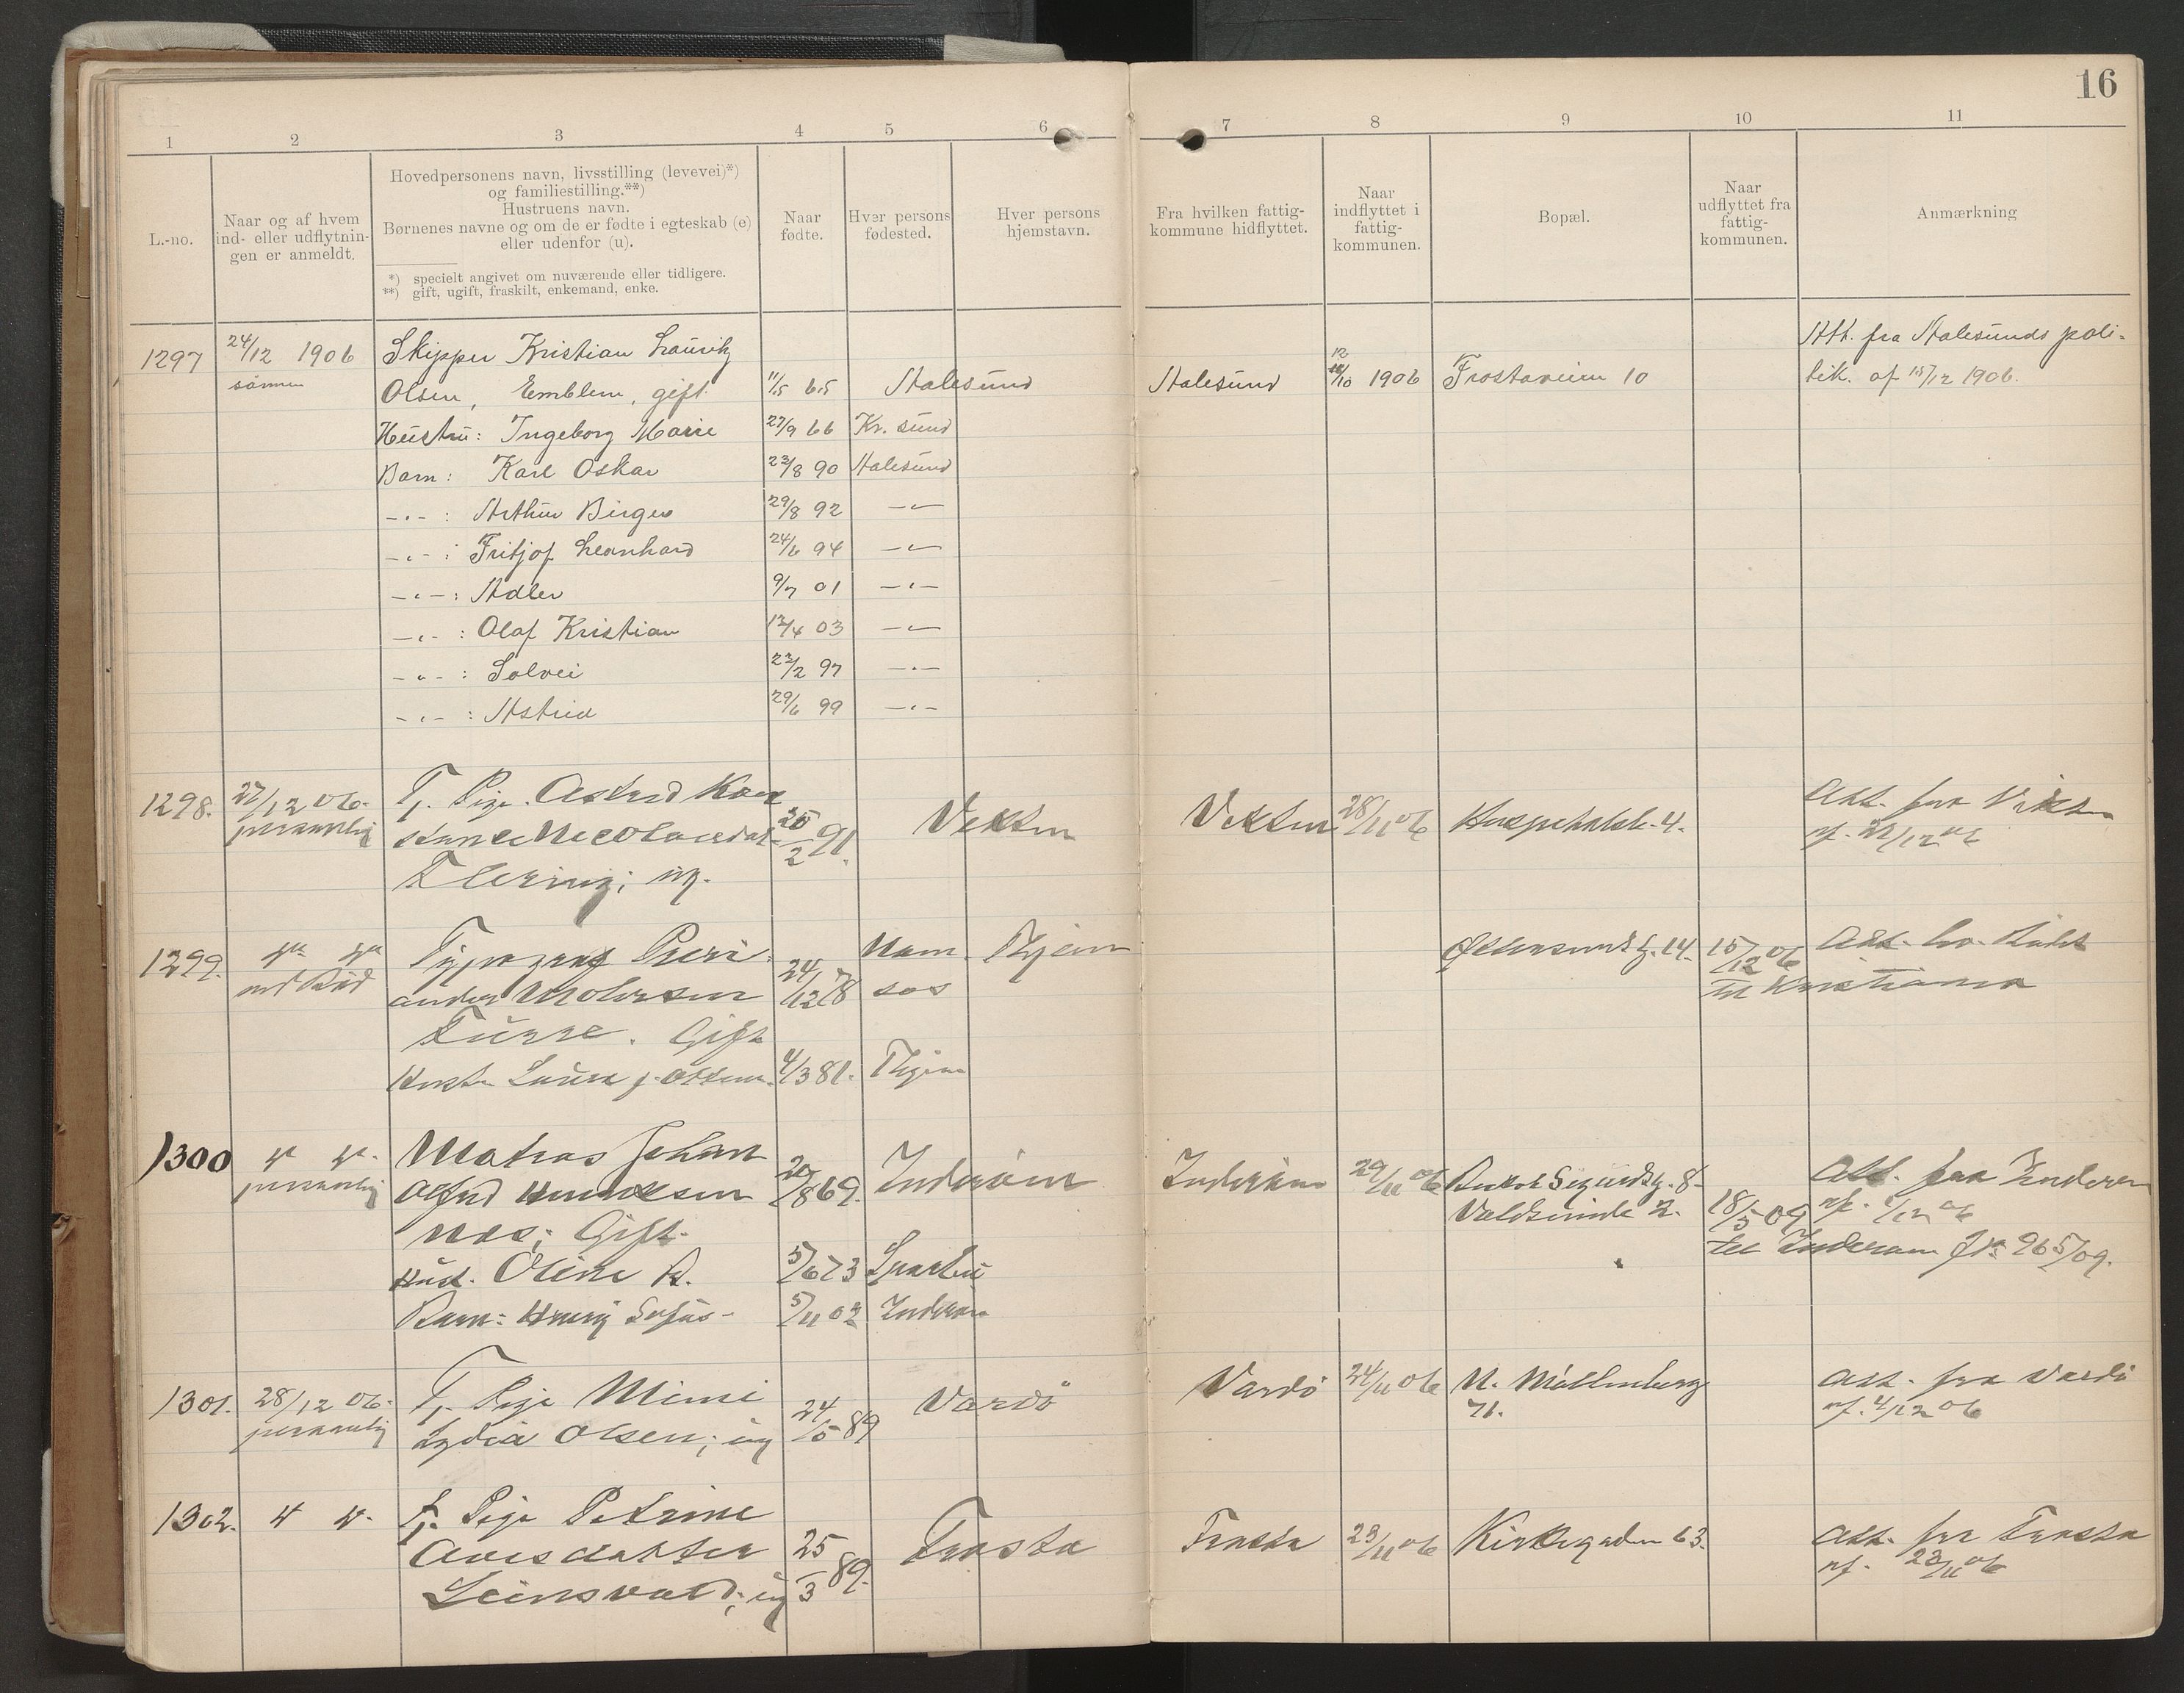 16
1 2 3 4 5 6 7 8 9 10 11
L.-no.
Naar og af hvem
ind- eller udflytnin-
gen er anmeldt.
Hovedpersonens navn, livsstilling (levevei)*)
og familiestilling.**)
Hustruens navn.
Børnenes navne og om de er fødte i egteskab (e)
eller udenfor (u).
*) specielt angivet om nuværende eller tidligere.
**) gift, ugift, fraskilt, enkemand, enke.
Naar
fødte.
Hver persons
fødested.
Hver persons
hjemstavn.
Fra hvilken fattig-
kommune hidflyttet.
Naar
indflyttet i
fattig-
kommunen.
Bopæl.
Naar
udflyttet fra
fattig-
kommunen.
Anmærkning
1297 24/12 1906 Skipper Kristian Lauritz 12 Att. fra Aalesunds poli-
Olsen, Emblem, gift 11/5 65 Aalesund Aalesund /10 1906 Frostaveien 10 tik. af 18/12 1906.
Hustru: Ingeborg Marie 27/9 66 Kr. sund
Barn: Karl Oskar 23/8 90 Aalesund
-"- : Arthur Birger 29/8 92 -"-
-"- : Fritjof Leonhard 24/6 94 -"-
-"- : Adler 9/7 01 -"-
-"- : Olaf Kristian 12/4 03 -"-
-"- : Solvei 22/2 97 -"-
-"- : Astrid 29/6 99 -"-
1298. 27/12 06. Tj. Pige. Astrid Kon Vikten Vikten 28/11 06 Hospitalsl. 4. Att. fra Vikten
personlig stance Nicolaisdat 25/2 91. af 22/12 06
Flering; ug.
1299. " " Typograf Peri Nam- Thjem 15/12 06 Att. av
ander 24/12 78 sos til Kristiania
Gift
Hust. Laura f. Olsen 4/3 81. Thjem
1300 " " Matros Johan Inderøen Inderøen 29/11 06 Sigurdsg. 8- Att. fra Inderøen
personlig Alfred Henriksen 20/8 69. 18/5 09 af 1/12 06
Næs; Gift. til Inderøen Jr. 965/09.
Hust. Oline K. 5/6 73 Sparbu
Barn: Henry Sofus- 5/11 02 Inderøen
1301. 28/12 06. Tj. Pige Mimi Vardø Vardø 24/11 06 N. Møllenberg Att. fra Vardø
personlig Lydia Olsen; ug 24/5 89 71. af. 4/12 06
1302. " " Tj. Pige Petrine
Avesdatter 25/3 89. Frosta Frosta 23/11 06 Kirkegaden 63. Att. fra Frosta
Leinsvald; ug af. 23/11 06